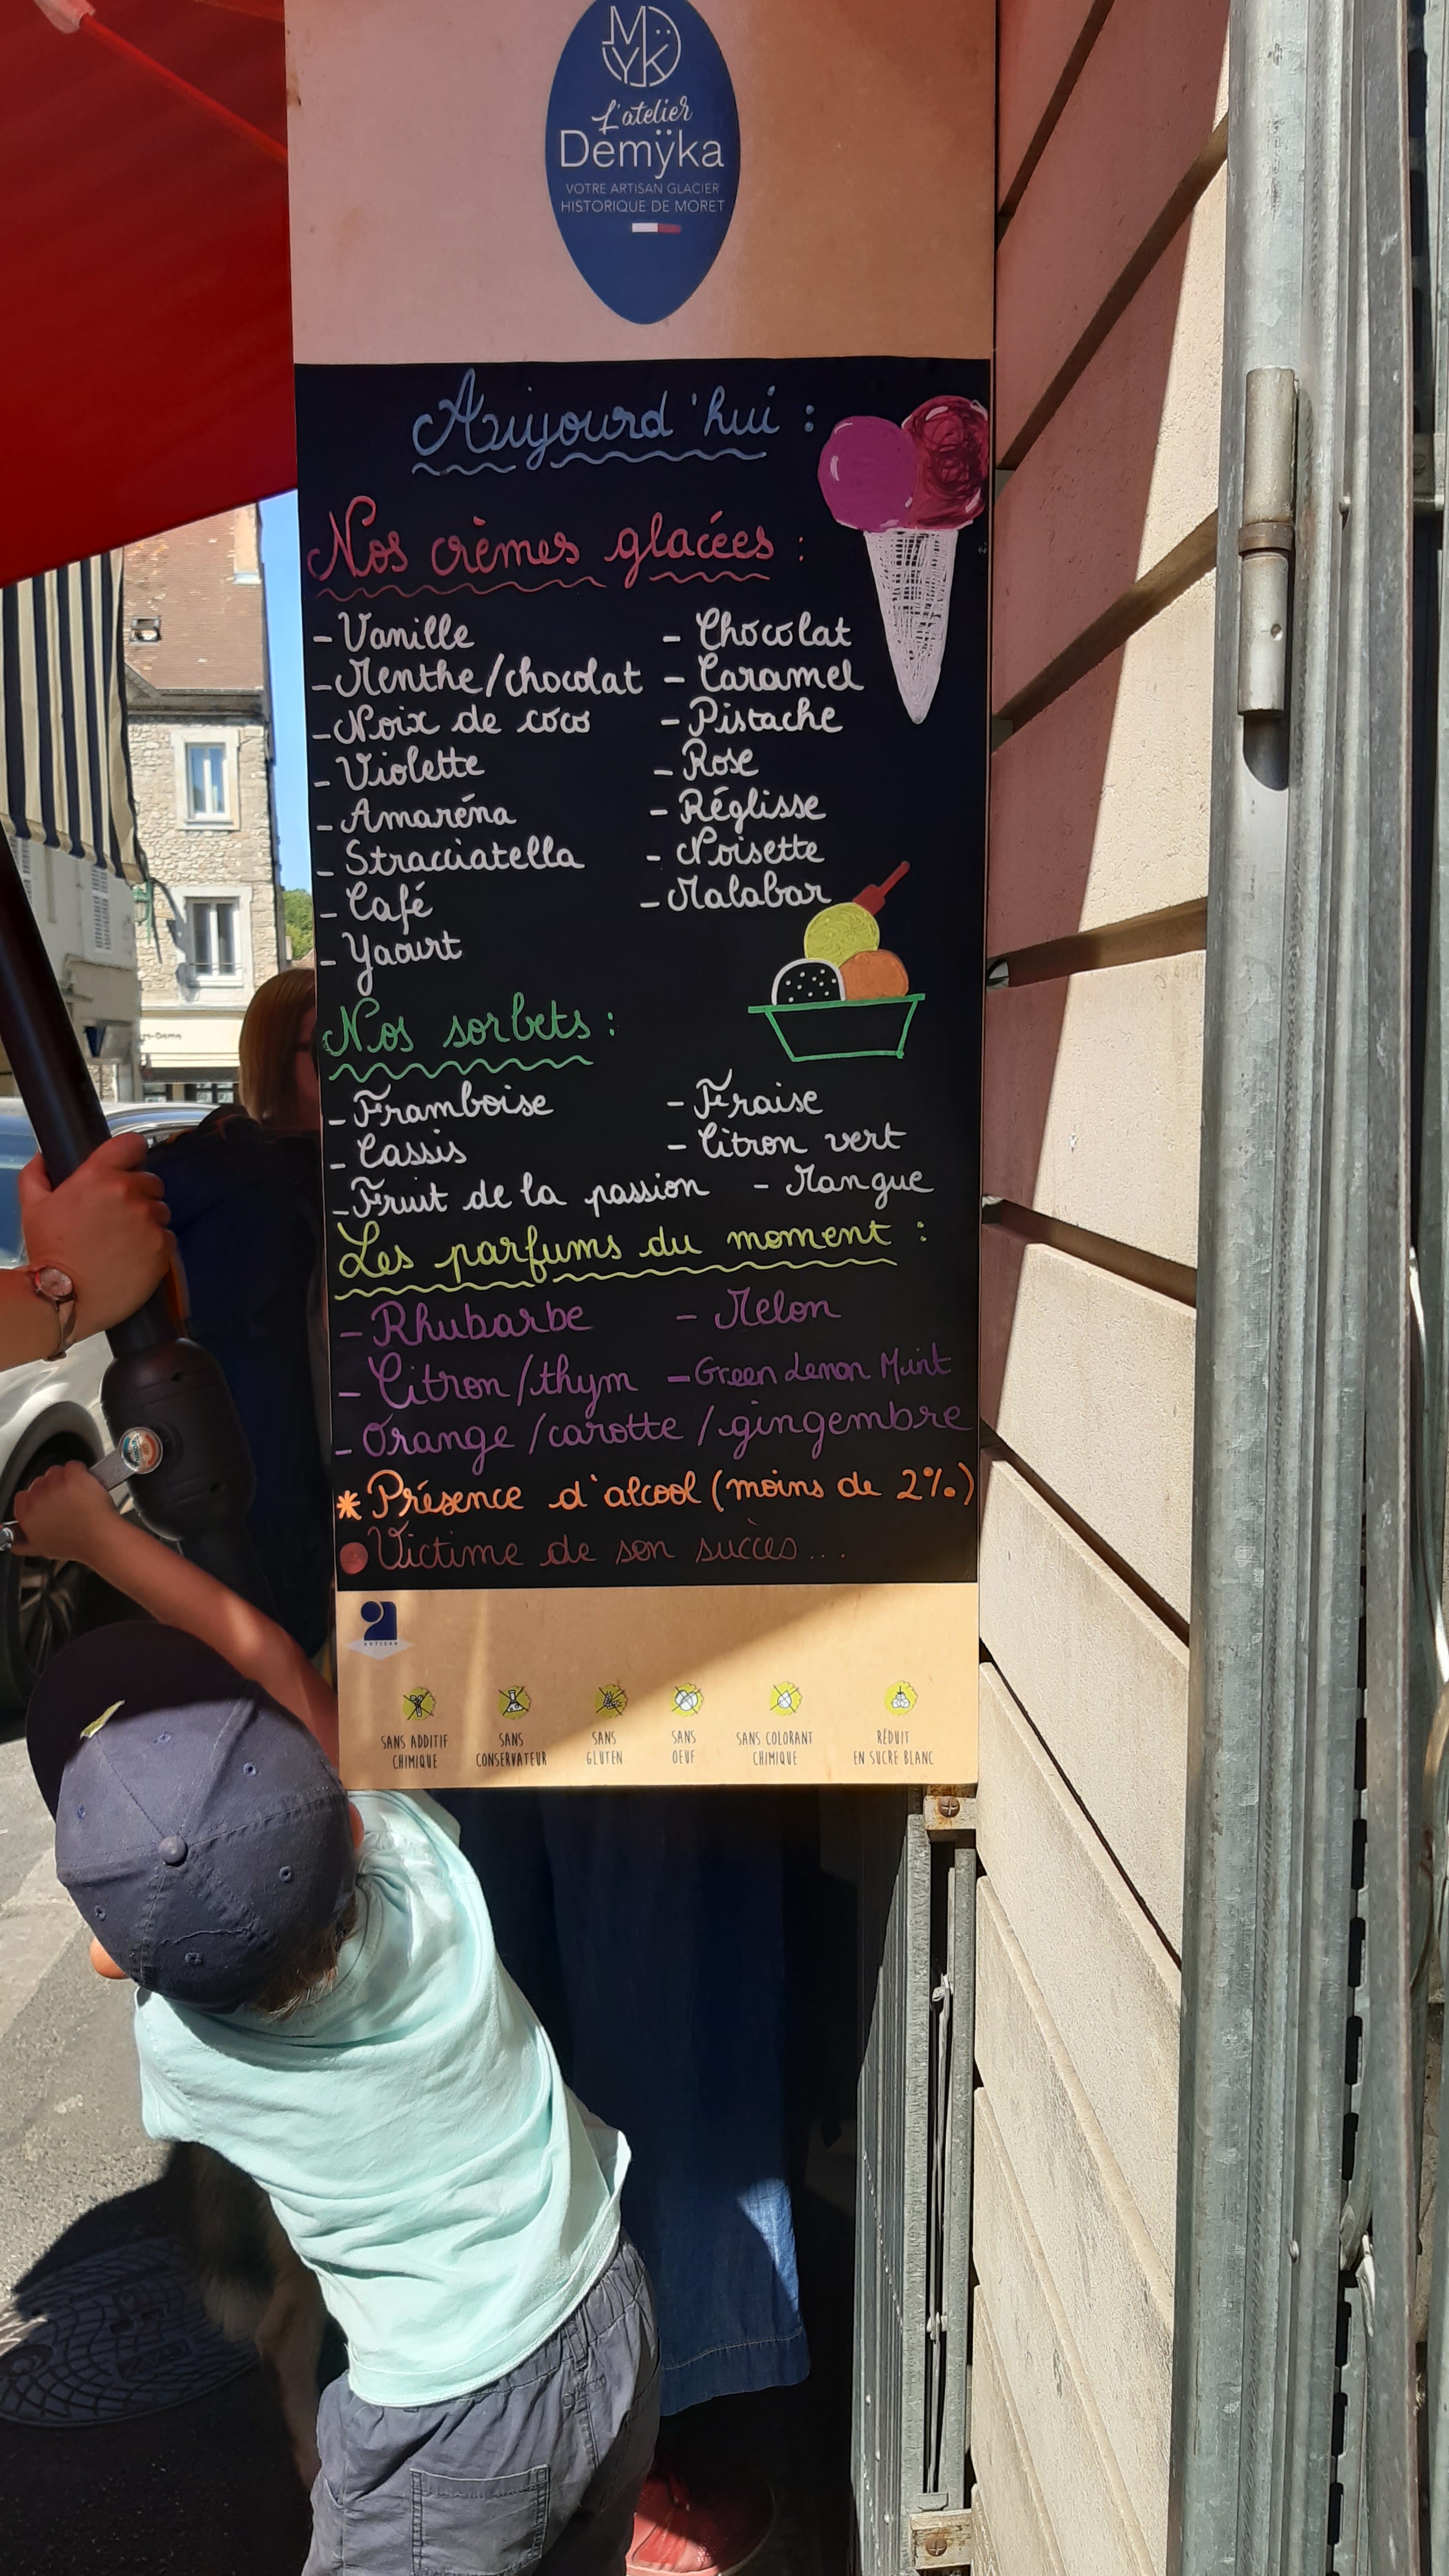 MYK
L'atelier
Demÿka
VOTRE ARTISAN GLACIER
HISTORIQUE DE MORET
Aujourd'hui :
Nos crèmes glacées :
- Vanille - Chocolat
- Menthe/chocolat - Caramel
- Noix de coco - Pistache
- Violette - Rose
- Amaréna - Réglisse
- Stracciatella - Noisette
- Café - Malabar
- Yaourt
Nos sorbets :
- Framboise - Fraise
- Cassis - Citron vert
- Fruit de la passion - Mangue
Les parfums du moment :
- Rhubarbe - Melon
- Citron/thym - Green Lemon Mint
- Orange/carotte/gingembre
* Présence d'alcool (moins de 2%)
Victime de son succès...
ARTISAN
SANS ADDITIF CHIMIQUE
SANS CONSERVATEUR
SANS GLUTEN
SANS OEUF
SANS COLORANT CHIMIQUE
RÉDUIT EN SUCRE BLANC